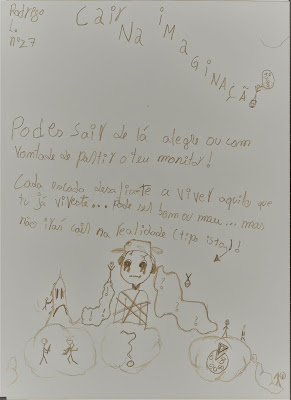 Rodrigo
L.
nº27
Cair Na imaginação
Podes sair de lá alegre ou com
vontade de partir o teu monitor!
Cada escada desafiante a viver aquilo que
tu já viveste... pode ser bom ou mau... mas
não irás cair na realidade (tipo isto)!
?